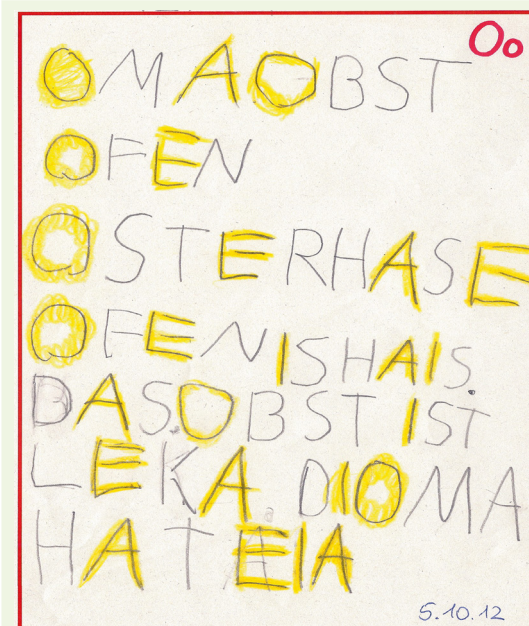 Oo
OMAOBST
OFEN
OSTERHASE
OFENISHAIS.
DAS.OBST IST
LEKA. DIOMA
HATEIA
5.10.12